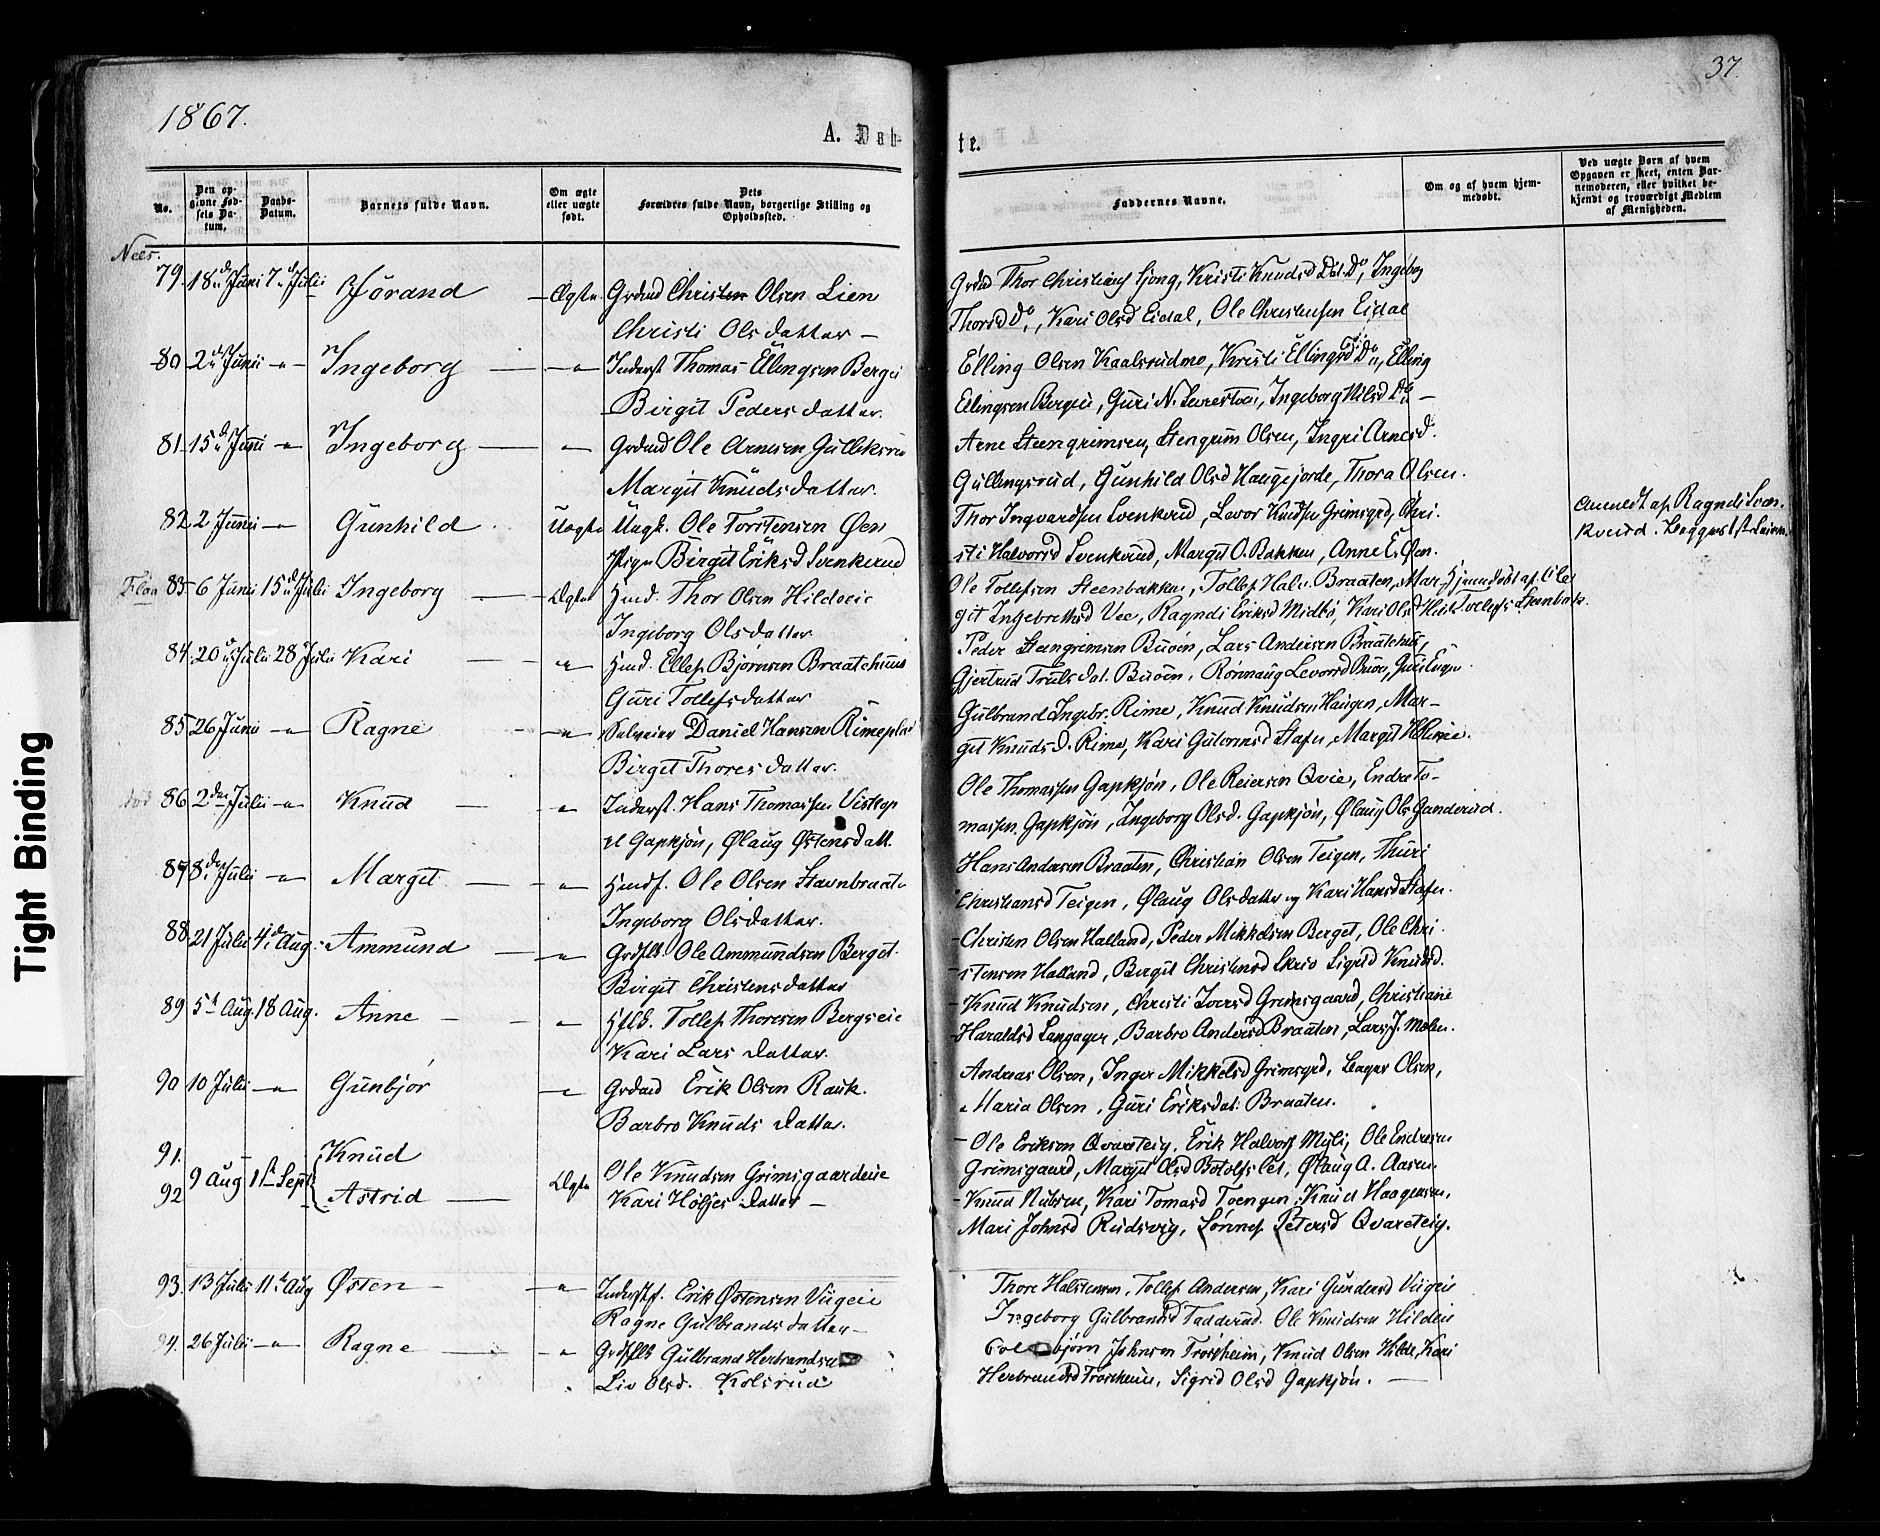 1867.
37.
A. Døbte.
No.
Den opgivne Fødsels Datum.
Daabs-Datum.
Barnets fulde Navn.
Om ægte eller uægte født.
Dets Forældres fulde Navn, borgerlige Stilling og Opholdssted.
Faddernes Navne.
Om og af hvem hjemmedøbt.
Ved uægte Børn af hvem Opgaven er skeet, enten Barnemoderen, eller hvilket bekjendt og troværdigt Medlem af Menigheden.
Nees.
79. 18d Juni 7d Julii Jörand — Ægte Grdmd Christen Olsen Lien
Christi Olsdatter —
Thor Christians Ljong, Kristi Knudsd Dat. Do, Ingebg
Thorsd Do, Kari Olsd Eidal, Ole Christensen Eidal
80 2d Junii -"- Ingeborg — -"- Inderst Thomas Ellingsen Bergei
Birgit Pedersdatter.
Elling Olsen Kaalsrudmo, Kristi Ellingsd Do, Elling
Ellingsen Bergeie, Guri N. , Ingeborg Nilsd Do —
81. 15d Juni -"- Ingeborg — -"- Grdmd Ole Arnesen Gulliksrud
Margit Knudsdatter.
Arne Steengrimsen, Stengrim Olsen, Ingri Arnesd.
Gullingsrud, Gunhild Olsd Haugejorde, Thora Olsen.
82 2 Junii -"- Gunhild Uægte Ungk. Ole Torstensen Øen
Pige Birgit Eriksd Svenkerud
Thor Ingvardsen Svenkerud, Levor Knudsen Grimsgrd, Chri-
sti Halvorsd Svenkerud, Margit O. Bakken, Anne E. Øen.
Anmeldt af Ragndi Sven-
kerud.
Flaa 83 6 Juni 15d Julii Ingeborg — Ægte Hmd. Thor Olsen Hildeeie
Ingeborg Olsdatter
Ole Tollefsen Steenbakken, Tollef Halv. Braaten, Mar- Hjemmedøbt af Ole
git Ingebrethsd Vee, Ragndi Eriksd Midbö, Kari Olsd Tollefs Steenbak.
84. 20d Julii 28 Julii Kari — -"- Hmd. Ellef Bjørnsen Braatehuus
Guri Tollefsdatter
Peder Steengrimsen Buöen, Lars Andersen Braatehus,
Gjertrud Trulsdat. Buöen, Rönnaug Levorsd Buöen, Guri
85 26 Junii -"- Ragne -"- Selveier Daniel Hansen Rimeplas
Birget Thoresdatter.
Gulbrand Ingebr. Rime, Knud Knudsen Haugen, Mar-
git Knudsd. Rime, Kari Gulormsd Stafn, Margit H. Rime.
död 86 2den Julii -"- Knud — -"- Inderst. Hans Thomassen Viskop
el Gapkjön, Ølaug Østensdatt.
Ole Thomassen Gapkjön, Ole Reiersen Qvie, Endre To-
massen Gapkjön, Ingeborg Olsd. Gapkjön, Ølaug Ols Ganderud.
87 8de Julii -"- Margit — -"- Hmdf. Ole Olsen Stavnbraate
Ingeborg Olsdatter.
Hans Andersen Braaten, Christian Olsen Teigen, Thuri
Christiansd Teigen, Ølaug Olsdatter og Kari Hansd Stafn.
88 21 Julii 4d Aug. Ammund — -"- Grdflk. Ole Ammundsen Berget.
Birgit Christensdatter
Christen Olsen Halland, Peder Mikkelsen Berget, Ole Chri-
stensen Halland, Bergit Christensd Skrio Sigrid Knudsd.
89 5t Aug. 18 Aug. Anne — -"- Hflk. Tollef Thoresen Bergseie
Kari Larsdatter.
Knud Knudsen, Christi Iversd Grimsgaard, Christiane
Haraldsd Langager, Barbro Andersd Braaten, Lars J. Moen.
90 10 Julii -"- Gunbjør -"- Grdmd Erik Olsen Rauk.
Barbro Knudsdatter.
Andreas Olsen, Inger Mikkelsd Grimsgrd, Beret Olsen,
Maria Olsen, Guri Eriksdat. Braaten.
91. Knud
92 9 Aug 1st Sept. Astrid — Ægte Ole Knudsen Grimsgaardeie
Kari Holjesdatter —
Ole Eriksen Qvareteig, Erik Halvors Myli, Ole Endresen
Grimsgaard, Margit Olsd Botolfslet, Ølaug A. Aasen.
Knud Nilsen, Kari Tomasd Toengen, Knud Haagensen,
Mari Johnsd Rudsvig, Sönnef Petersd Qvareteig.
93. 13 Julii 11te Aug Østen -"- Inderstf. Erik Østensen Viigeie
Ragne Gulbrandsdatter —
Thore Halstensen, Tollef Andersen, Kari Gundersd Viigeie
Ingeborg Gulbrandsd Fadderud. Ole Knudsen Hildeie
94. 26 Julii -"- Ragne — -"- Grdflk Gulbrand Herbrandsen
Liv Olsd. Kolsrud
bjørn Johnsen Trosheim, Knud Olsen Hilde, Kari
Herbrandsd Trosheim, Sigrid Olsd Gapkjön. —
Tight Binding